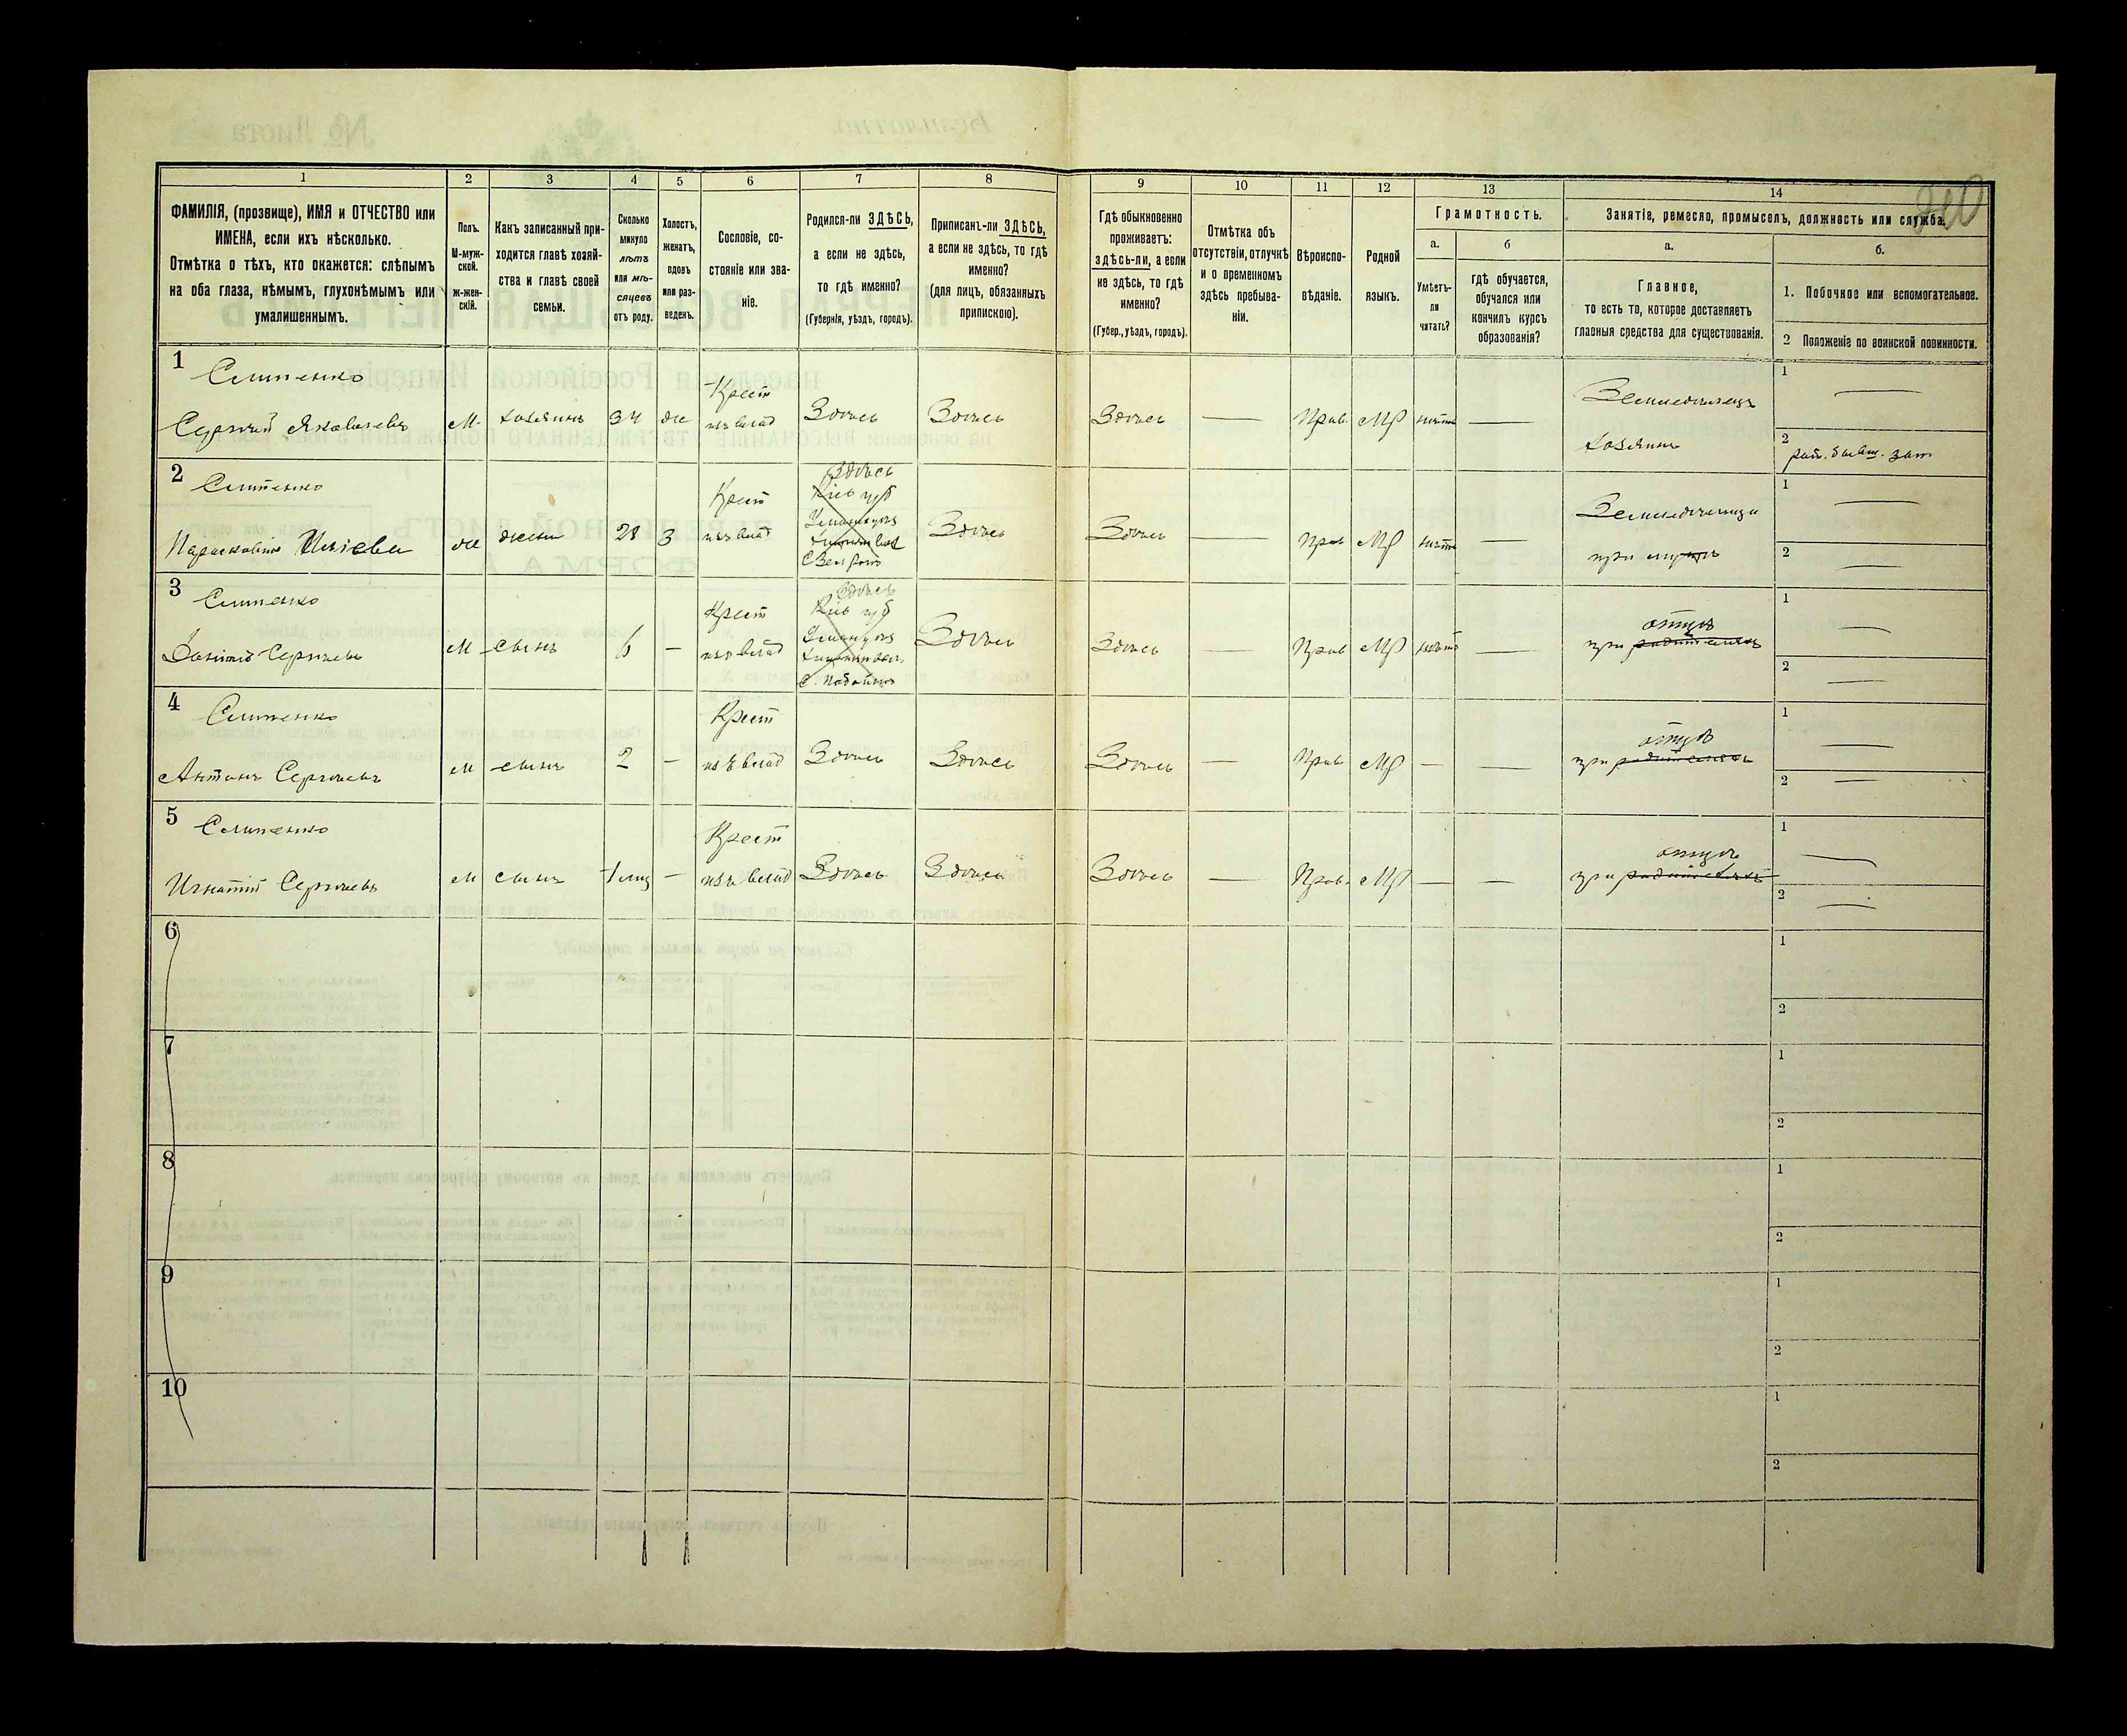 240
1 2 3 4 5 6 7 8 9 10 11 12 13 14
ФАМИЛІЯ, (прозвище), ИМЯ и ОТЧЕСТВО или
ИМЕНА, если ихъ нѣсколько.
Отмѣтка о тѣхъ, кто окажется: слѣпымъ
на оба глаза, нѣмымъ, глухонѣмымъ или
умалишеннымъ.
Полъ.
М-муж-
ской.
ж-жен-
скій.
Какъ записанный при-
ходится главѣ хозяй-
ства и главѣ своей
семьи.
Сколько
минуло
лѣтъ
или мѣ-
сяцевъ
отъ роду.
Холостъ,
женатъ,
вдовъ
или раз-
веденъ.
Сословіе, со-
стояніе или зва-
ніе.
Родился-ли ЗДѢСЬ,
а если не здѣсь,
то гдѣ именно?
(Губернія, уѣздъ, городъ).
Приписанъ-ли ЗДѢСЬ,
а если не здѣсь, то гдѣ
именно?
(для лицъ, обязанныхъ
припискою).
Гдѣ обыкновенно
проживаетъ:
здѣсь-ли, а если
не здѣсь, то гдѣ
именно?
(Губер., уѣздъ, городъ).
Отмѣтка объ
отсутствіи, отлучкѣ
и о временномъ
здѣсь пребыва-
ніи.
Вѣроиспо-
вѣданіе.
Родной
языкъ.
Грамотность.
а.
Умѣетъ-
ли
читать?
б
гдѣ обучается,
обучался или
кончилъ курсъ
образованія?
Занятіе, ремесло, промыселъ, должность или служба.
а.
Главное,
то есть то, которое доставляетъ
главныя средства для существованія.
б.
1. Побочное или вспомогательное.
2 Положеніе по воинской повинности.
1
Крест Земледѣлецъ 1 —
Сергѣй Яковлевъ М. хозяинъ 34 ж изъ влад Здѣсь Здѣсь Здѣсь — Прав. МР нѣтъ — хозяинъ 2
2
Крест Здѣсь Кіев губ Земледѣлица 1 —
Параскевія Ильіева ж жена 28 З изъ влад Здѣсь Здѣсь — Прав МР нѣтъ — при мужѣ 2 —
3
Крест Здѣсь Кіев губ отцѣ 1 —
Сергѣевъ М сынъ 6 — изъ влад Здѣсь Здѣсь — Прав МР нѣтъ — при родителяхъ 2 —
4
Крест отцѣ 1 —
Антонъ Сергѣевъ М сынъ 2 — изъ влад Здѣсь Здѣсь Здѣсь — Прав МР — — при родителяхъ 2 —
5
Крест отцѣ 1 —
Игнатій Сергѣевъ М сынъ 1 мѣц — изъ влад Здѣсь Здѣсь Здѣсь — Прав. МР — — при родителяхъ 2 —
6 1
2
7 1
2
8 1
2
9 1
2
10 1
2